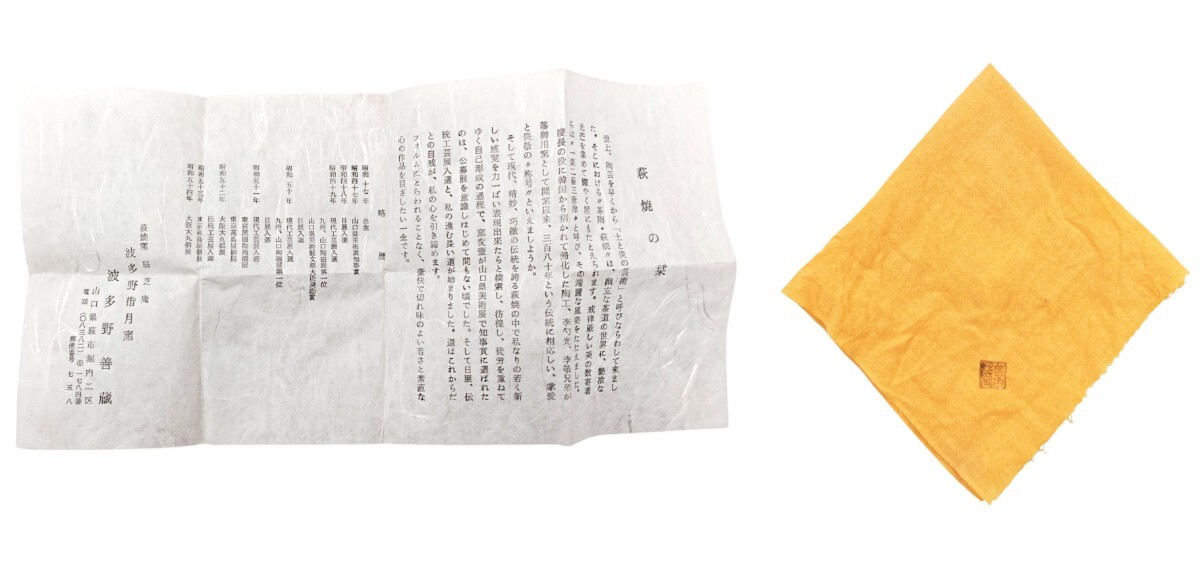 萩焼の栞
世上、陶芸を早くから「土と炎の芸術」と呼びならわして来まし
た。そこにおける〝茶陶・萩焼〟は、幽玄な茶道の世界に、艶冶な
光芒を集めて輝やく星にもたとえられます。戒律厳しい美の数寄者
らは〝一楽二萩三唐津〟と呼び、その端麗な風姿をたたえました。
慶長の役に韓国から招かれて帰化した陶工、李勺光、李敬兄弟が
藩御用窯として開窯以来、三百八十年という伝統に相応しい、敬愛
と畏敬の〝称号〟といえましようか。
そして現代、精妙、巧緻の伝統を誇る萩焼の中で私なりの若く新
しい感覚を力一ぱい表現出来たらと模索し、彷徨し、徒労を重ねて
ゆく自己形成の過程で、窯変壺が山口県美術展で知事賞に選ばれた
のは、公募展を意識しはじめて間もない頃でした。そして日展、伝
統工芸展入選と、私の進む長い道が始まりました。道はこれからだ
との自戒が、私の心を引き締めます。
フォルムにとらわれることなく、豪快で切れ味のよい若さと素直な
心の作品を目ざしたい一念です。
略歴
昭和十七年 出生
昭和四十七年 山口県美術展知事賞
昭和四十八年 日展入選
昭和四十九年 現代工芸展入選
九州、山口陶磁展第一位
山口県美術展文部大臣奨励賞
日展入選
昭和五十年 現代工芸展入選
九州、山口陶磁展第一位
日展入選
昭和五十一年 現代工芸展入選
東京個展
昭和五十二年 東京高島屋個展
大阪大丸個展
伝統工芸展入選
昭和五十三年 東京高島屋個展
昭和五十四年 大阪大丸個展
萩焼窯 芝庵
波多野指月窯
波多野善蔵
山口県萩市堀内二区
電話(〇八三八二)②一七八四番
郵便番号 七五八